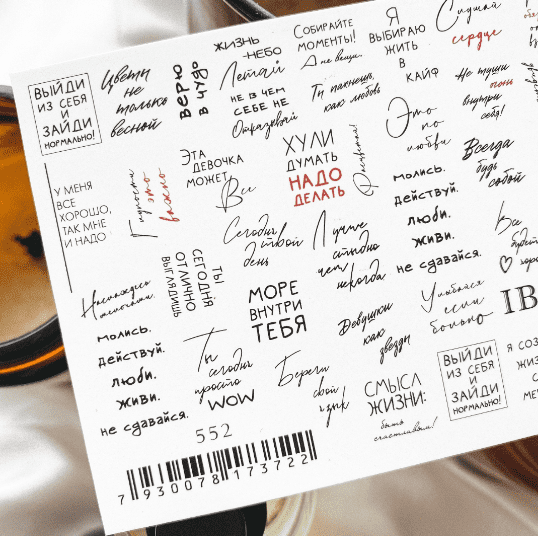 ВЫЙДИ
ИЗ СЕБЯ
И
ЗАЙДИ
НОРМАЛЬНО!
Цветы
не
только
весной
ВЕРЮ
В ЧУДО
ЖИЗНЬ
-НЕБО
Летай
НЕ В ЧЕМ
СЕБЕ НЕ
Отказывай
СОБИРАЙТЕ
МОМЕНТЫ!
А не вещи.
Ты пахнешь,
как любовь
Я
ВЫБИРАЮ
ЖИТЬ
В
КАЙФ
Слушай
сердце
Не туши
огонь
внутри
себя!
У МЕНЯ
ВСЕ
ХОРОШО,
ТАК МНЕ
И НАДО
это
важно
ЭТА
ДЕВОЧКА
МОЖЕТ
Все
ХУЛИ
ДУМАТЬ
НАДО
ДЕЛАТЬ
Это
по
любви
Всегда
будь
собой
молись.
действуй.
люби.
живи.
не сдавайся.
Сегодня
твой
день
Лучше
стыдно
чем
никогда
Все
будет
хоро
ТЫ
СЕГОДНЯ
ОТЛИЧНО
ВЫГЛЯДИШЬ
МОРЕ
ВНУТРИ
ТЕБЯ
Девушки
как
звезды
Улыбайся
если
больно
IB
молись.
действуй.
люби.
живи.
не сдавайся.
Ты
сегодня
просто
WOW
Береги
свой
СМЫСЛ
ЖИЗНИ:
быть
счастливым!
ВЫЙДИ
ИЗ СЕБЯ
И
ЗАЙДИ
НОРМАЛЬНО!
Я СОЗ
ЖИЗ
МЕЧ
552
7 930078 173722